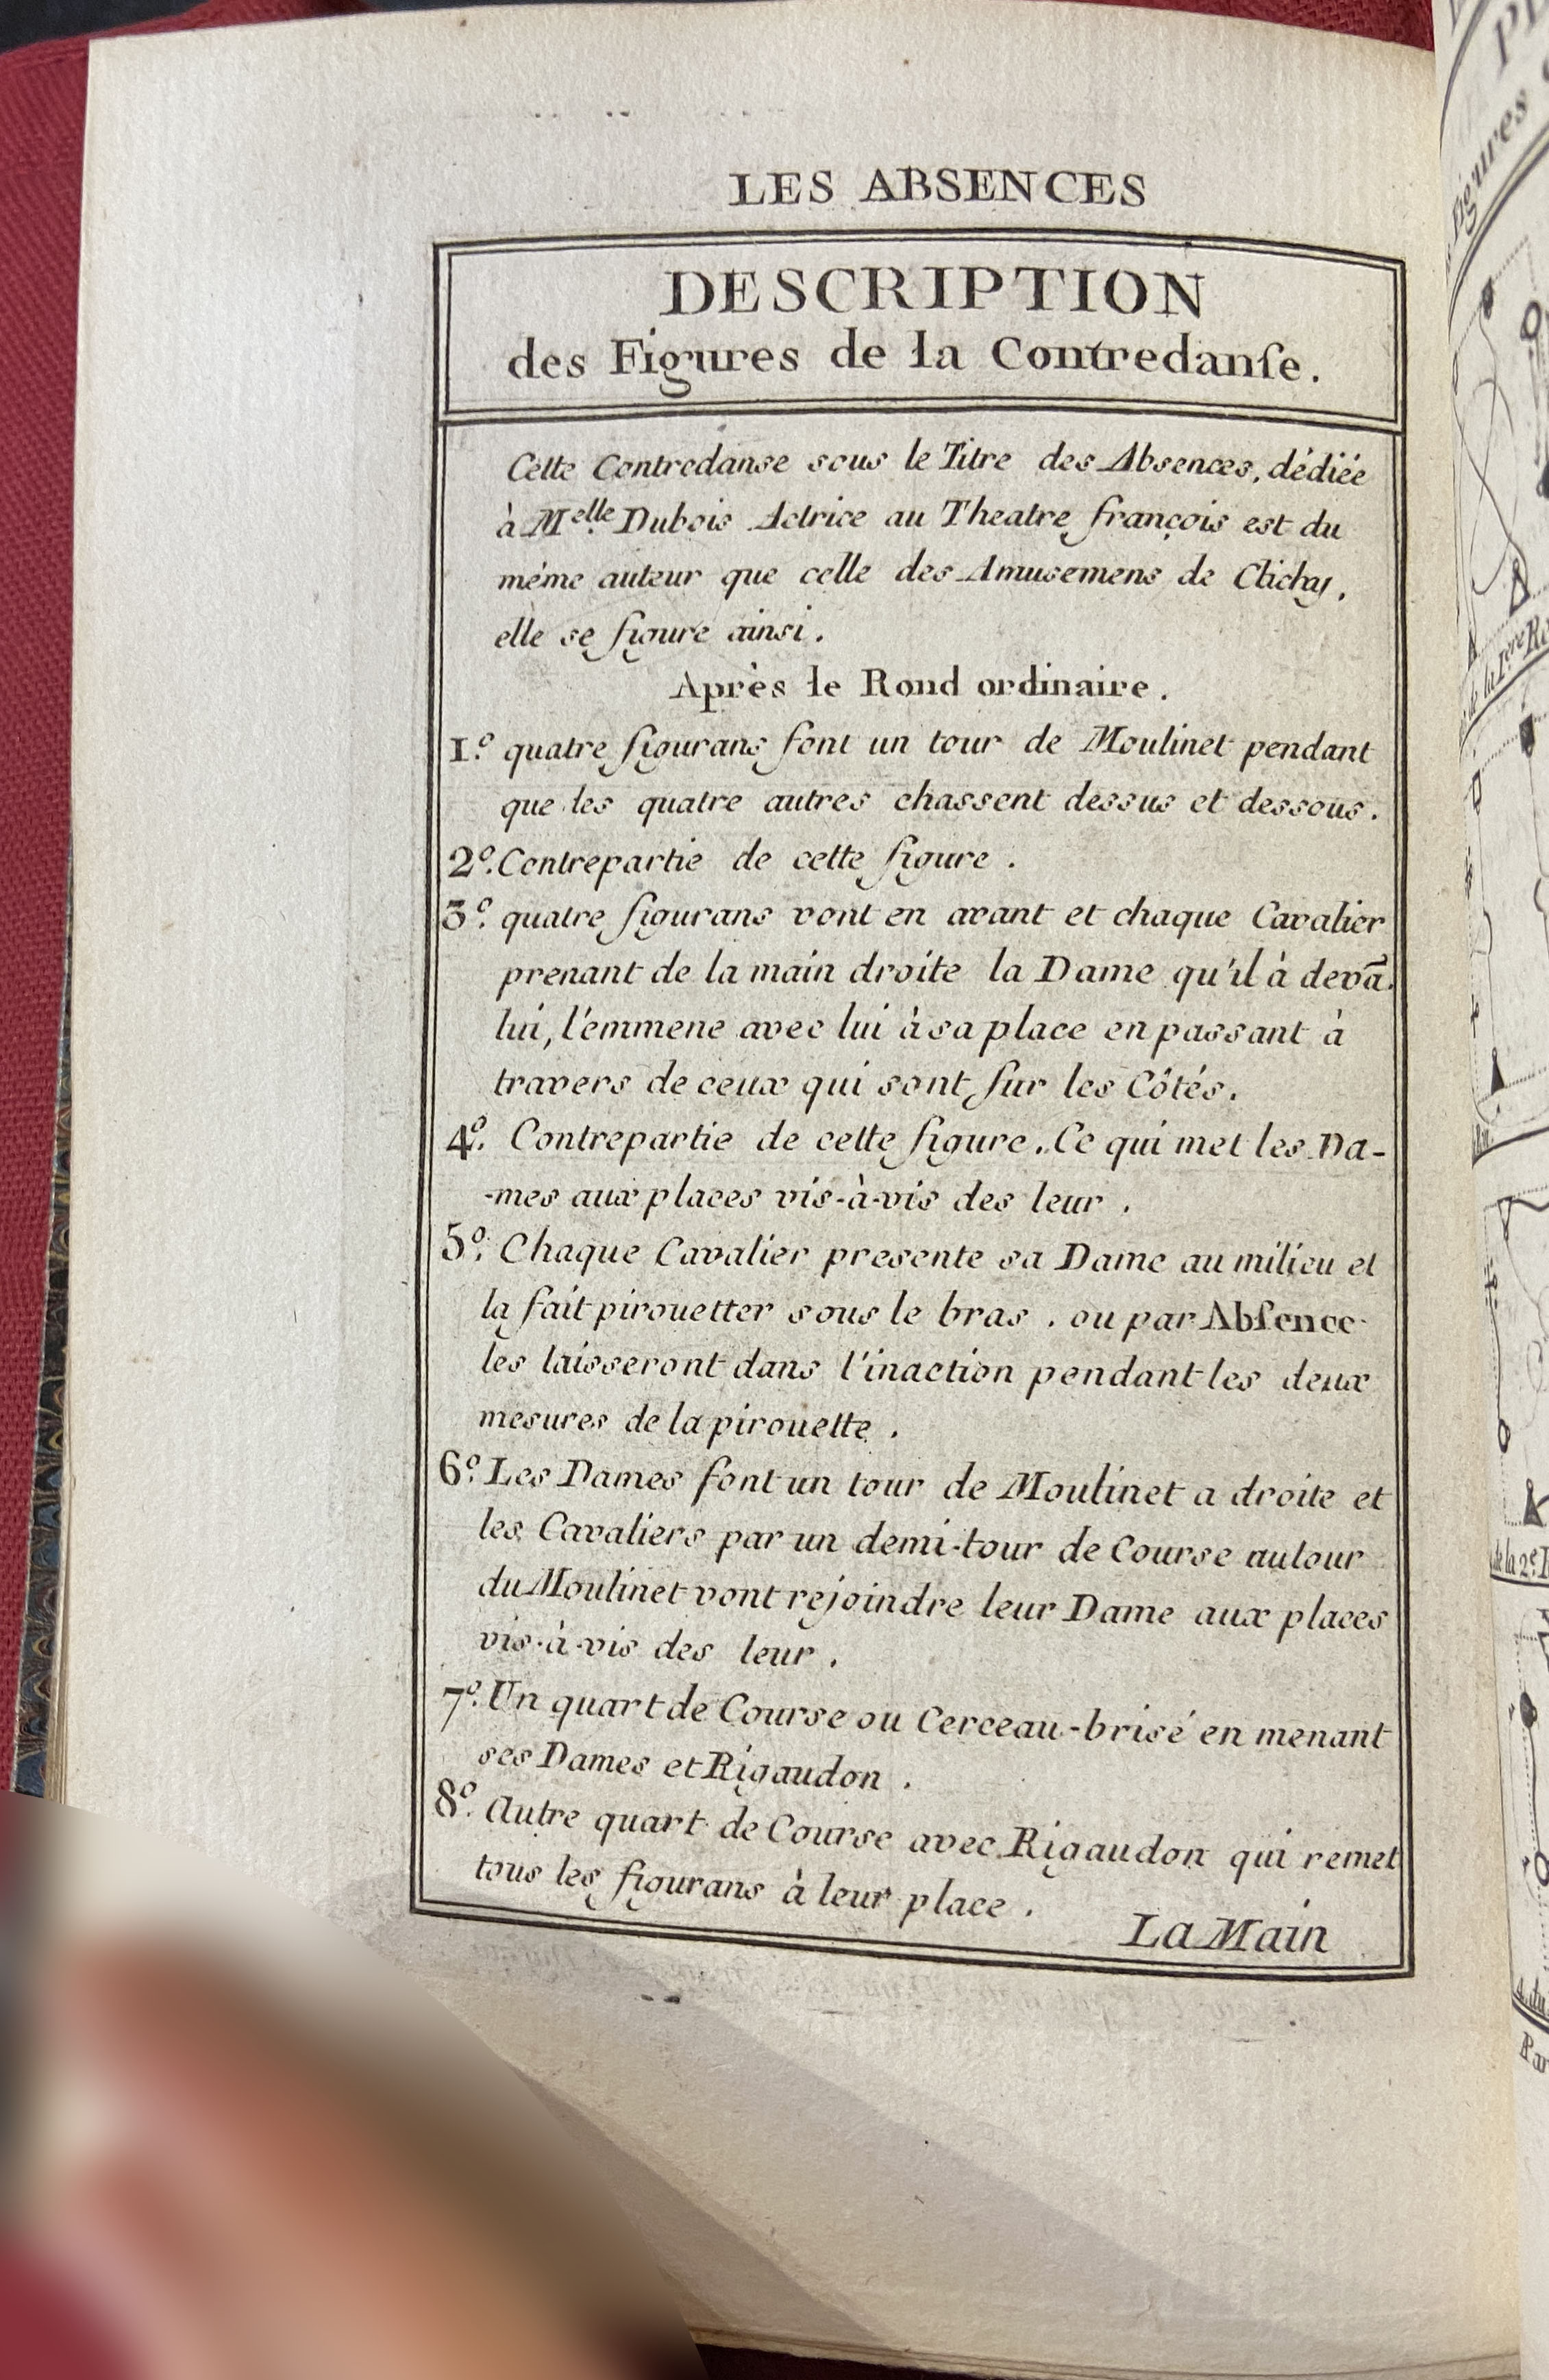 LES ABSENCES
DESCRIPTION
des Figures de la Contredanſe.
Cette Contredanse sous le Titre des Absences, dédiée
à M.elle Dubois Actrice au Theatre françois est du
même auteur que celle des Amusemens de Clichy,
elle se figure ainsi.
Après le Rond ordinaire.
1.º quatre figurans font un tour de Moulinet pendant
que les quatre autres chassent dessus et dessous.
2.º Contrepartie de cette figure.
3.º quatre figurans vont en avant et chaque Cavalier
prenant de la main droite la Dame qu'il à devā.
lui, l'emmene avec lui à sa place en passant à
travers de ceux qui sont ſur les Côtés.
4.º Contrepartie de cette figure. Ce qui met les Da-
-mes aux places vis-à-vis des leur.
5.º Chaque Cavalier presente sa Dame au milieu et
la fait pirouetter sous le bras. ou par Abſence
les laisseront dans l'inaction pendant les deux
mesures de la pirouette.
6.º Les Dames font un tour de Moulinet a droite et
les Cavaliers par un demi-tour de Course autour
du Moulinet vont rejoindre leur Dame aux places
vis-à-vis des leur.
7.º Un quart de Course ou Cerceau-brisé en menant
ses Dames et Rigaudon.
8.º Autre quart de Course avec Rigaudon qui remet
tous les figurans à leur place.
La Main
figures
de la 1.ere
de la 2.e